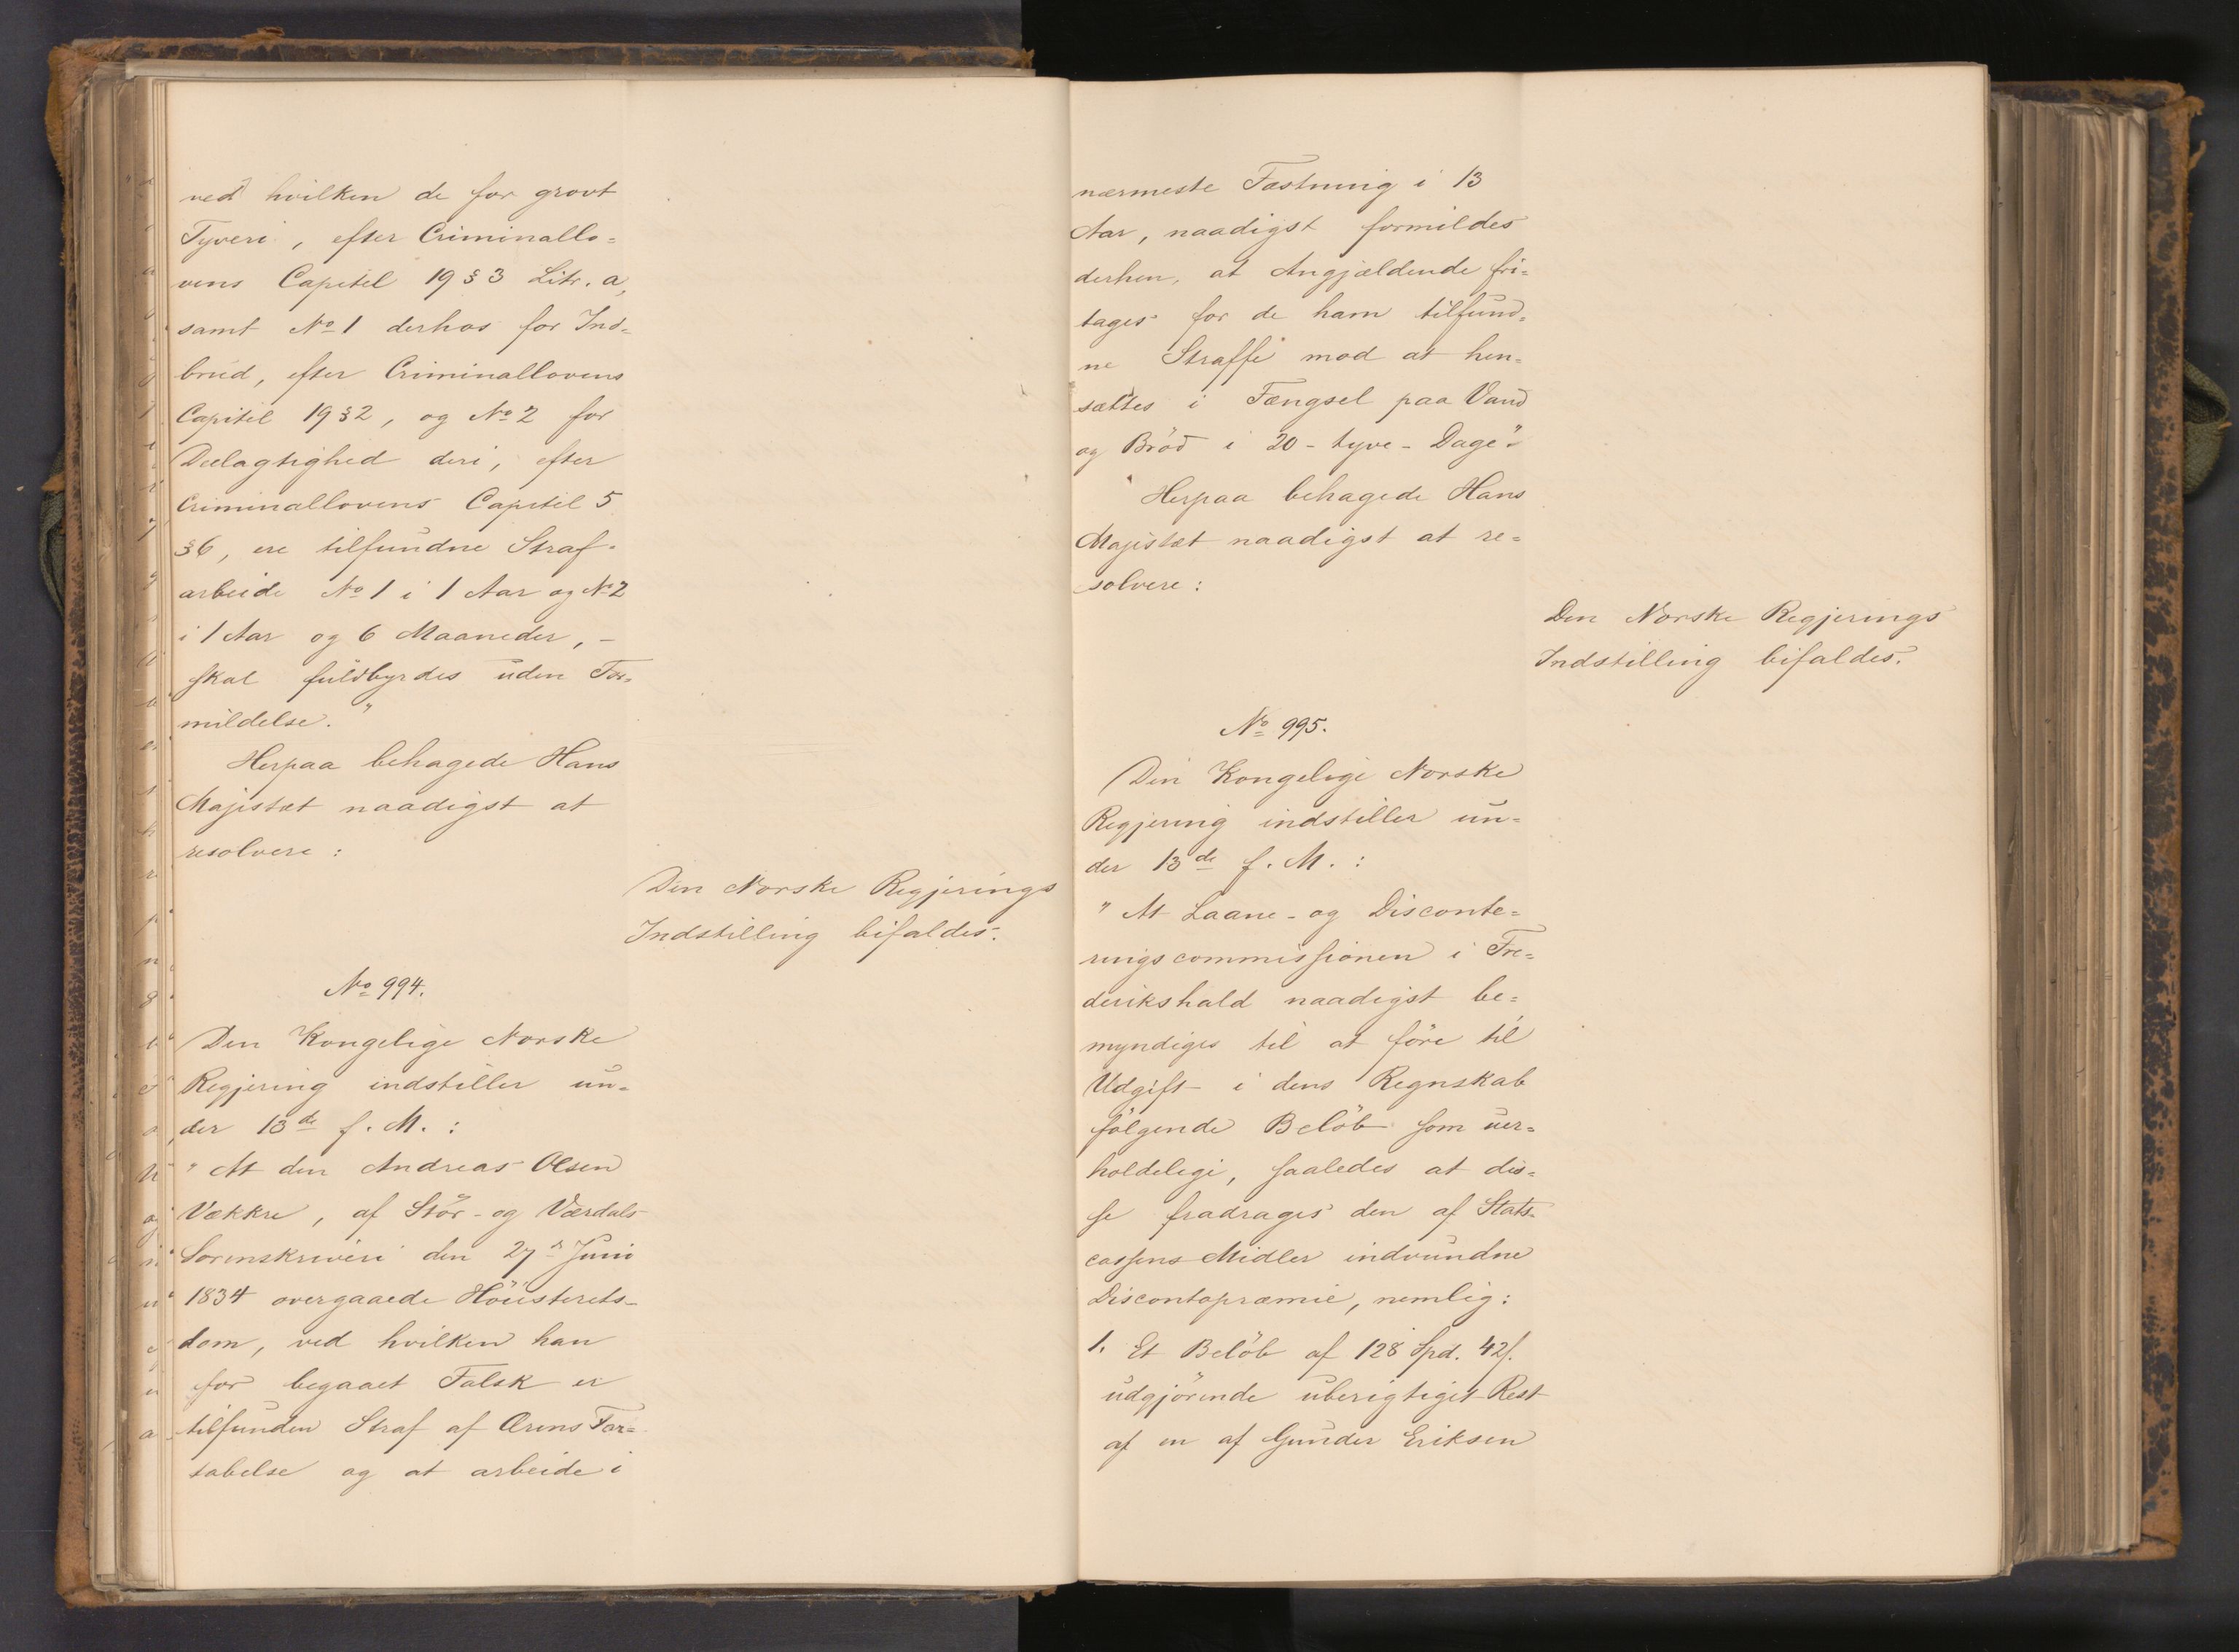 ved hvilken de for grovt
Tyveri, efter Criminallo=
vens Capitel 19 § 3 Litr. a,
samt No 1 derhos for Ind=
brud, efter Criminallovens
Capitel 19 § 2, og No 2 for
Deelagtighed deri, efter
Criminallovens Capitel 5
§ 6, ere tilfundne Straf=
arbeide No 1 i 1 Aar og No 2
i 1 Aar og 6 Maaneder, –
skal fuldbyrdes uden For=
mildelse."
Herpaa behagede Hans
Majestæt naadigst at
resolvere:
Den Norske Regjerings
Indstilling bifaldes.
No 994.
Den Kongelige Norske
Regjering indstiller un=
der 13de f. M.:
"At den Andreas Olsen
Vækkre, af Stör- og Værdals
Sorenskriveri den 27de Juni
1834 overgaaede Höiesterets=
dom, ved hvilken han
for begaaet Falsk er
tilfunden Straf af Ærens For=
tabelse og at arbeide i
nærmeste Fæstning i 13
Aar, naadigst formildes
derhen, at Angjældende fri=
tages for de ham tilfund=
ne Straffe mod at hen=
sættes i Fængsel paa Vand
og Bröd i 20 - tyve - Dage."
Herpaa behagede Hans
Majestæt naadigst at re=
solvere:
Den Norske Regjerings
Indstilling bifaldes.
No 995.
Den Kongelige Norske
Regjering indstiller un=
der 13de f. M.:
"At Laane- og Disconte=
ringscommissionen i Fre=
derikshald naadigst be=
myndiges til at före til
Udgift i dens Regnskab
fölgende Belöb som uer=
holdelige, saaledes at dis=
se fradrages den af Stats=
cassens Midler indvundne
Discontopræmie, nemlig:
1. Et Belöb af 128 Spd. 42 s.
udgjörende uberigtiget Rest
af en af Gunder Eriksen